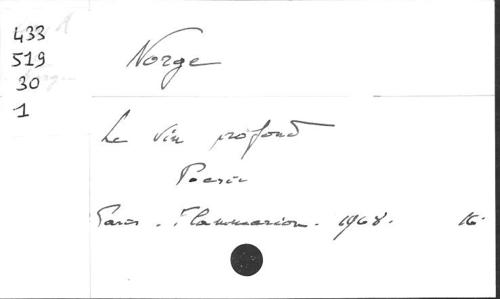 433
519
30
1
Norge
Le vin profond
Poesie
Paris. Flammarion. 1968. 16